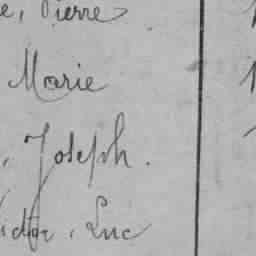 e, Pierre
Marie
, Joseph.
Victor, Luc